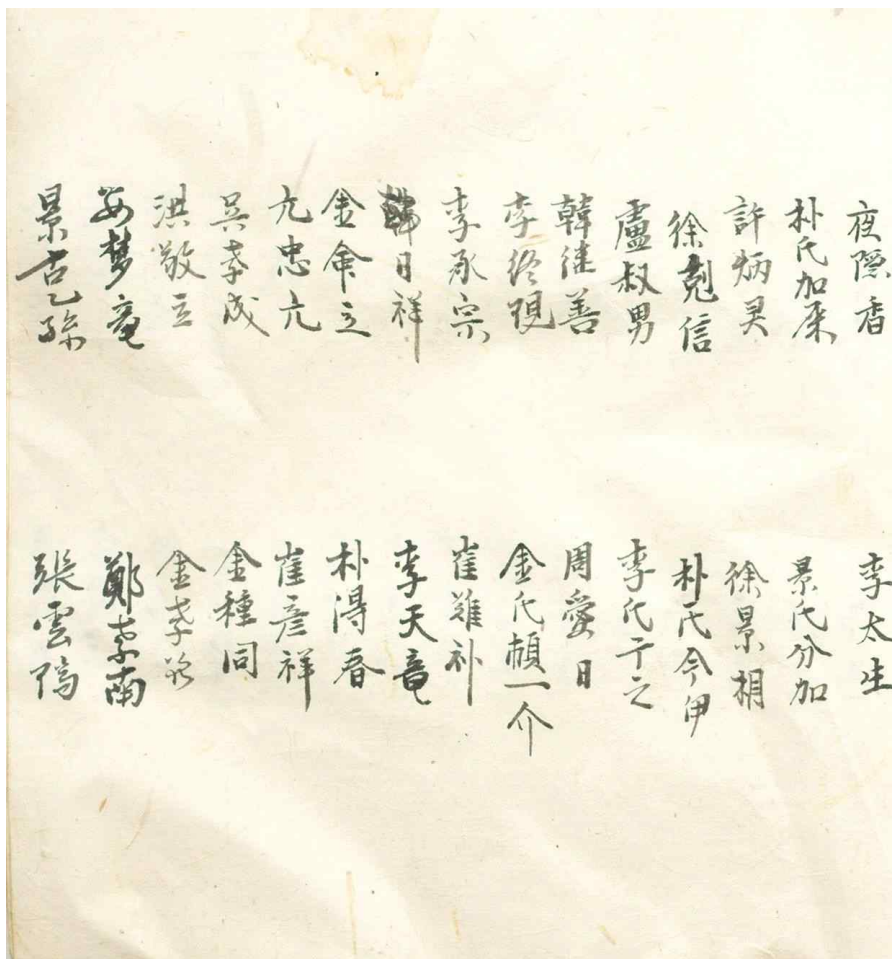 夜隠香
朴氏加屎
許炳
徐剋信
盧叔男
韓継善
李終現
李承宗
韓日祥
金命立
九忠亢
吳孝成
洪敬立
梦竜
景古乙孫
李太生
景氏分加
徐景桐
朴氏今伊
李氏之
周愛日
金氏頓一介
崔雖补
李天竜
朴淂春
崔彦祥
金種同
金孝
鄭孝南
張雲